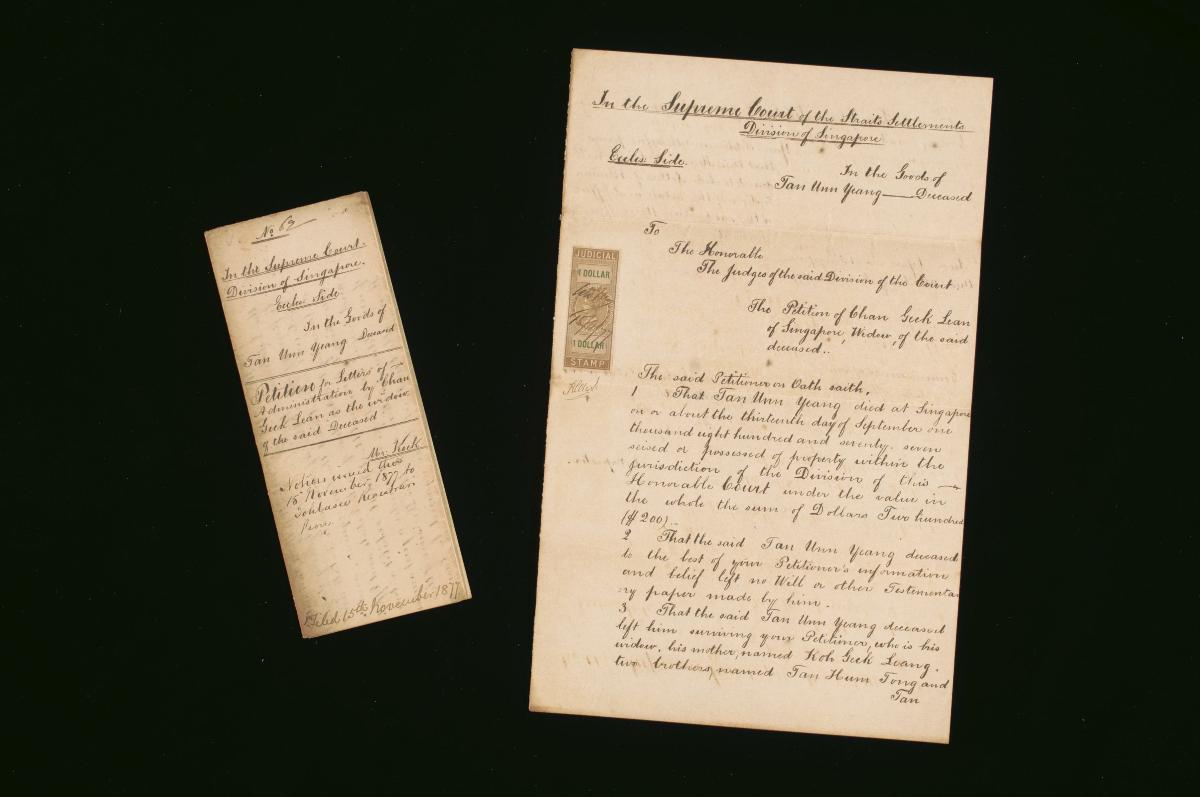 No 69
In the Supreme Court
Division of Singapore.
Eccles: Side
In the Goods of
Tan Unn Yeang Deceased
Petition for Letters of
Administration by Chan
Geek Lean as the widow
of the said Deceased
Mr. Koek
Notices issued this
15 November 1877 to
Filed 15th November 1877
In the Supreme Court of the Straits Settlements
Division of Singapore
Eccles: Side.
In the Goods of
Tan Unn Yeang — Deceased
To
The Honorable
The Judges of the said Division of the Court:
The Petition of Chan Geek Lean
of Singapore, Widow, of the said
deceased..
JUDICIAL
1 DOLLAR
1 DOLLAR
STAMP
The said Petitioner on Oath saith,
1 That Tan Unn Yeang died at Singapore
on or about the thirteenth day of September one
thousand eight hundred and seventy-seven
seised or possessed of property within the
jurisdiction of the Division of this —
Honorable Court under the value in
the whole the sum of Dollars Two hundred
($200)..
2 That the said Tan Unn Yeang deceased
to the best of your Petitioner's information
and belief left no Will or other Testamenta
:ry paper made by him.
3 That the said Tan Unn Yeang deceased
left him surviving your Petitioner, who is his
widow, his mother, named Koh Geek Leang.
two brothers, named Tan Hum Tong and
Tan